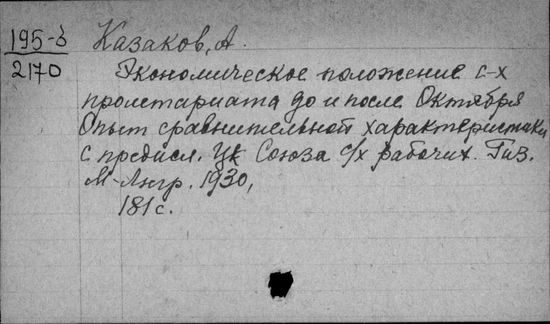 195-б
2170
Казаков, А.
Экономическое положение с-х
пролетариата до и после Октября
Опыт сравнительной характеристики
с предисл. Цк Союза с/х рабочих. Гиз.
М-Лнгр. 1930,
181 с.